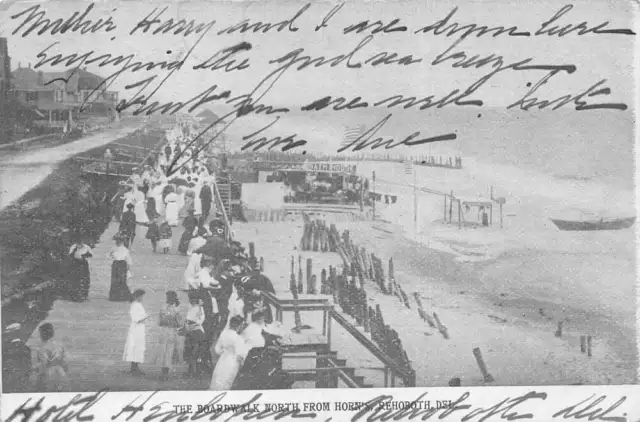 Mother, Harry and I are down here
Enjoying the good sea breeze
Trust you are well. with
love. Sue
BATH HOUSE
THE BOARDWALK NORTH FROM HORN'S, REHOBOTH, DEL.
Hotel Henlopen, Rehoboth, Del.